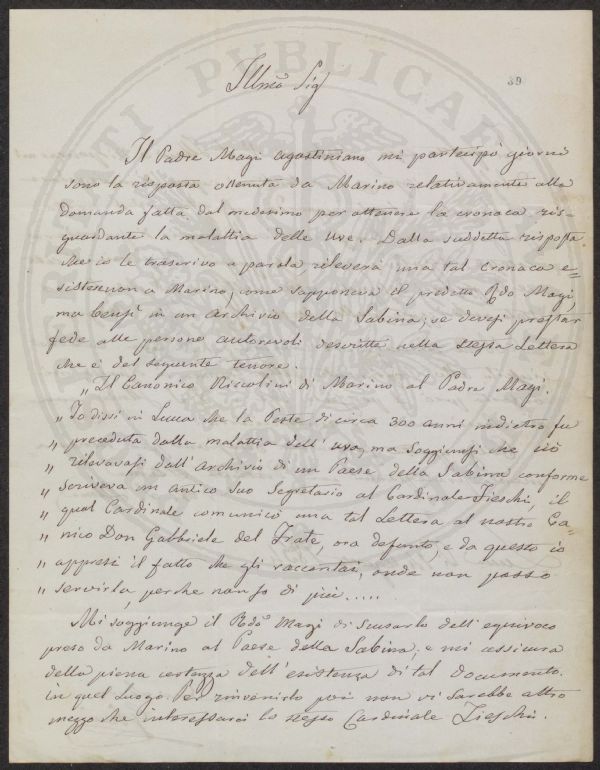 39
Illmo Sig
Il Padre Magi agostiniano mi partecipò giorni
sono la risposta ottenuta da Marino relativamente alla
domanda fatta dal medesimo per ottenere la cronaca ris=
guardante la malattia delle Uve. Dalla suddetta risposta
che io le trascrivo a parola, rileverà una tal cronaca e=
sistere non a Marino, come supponeva il predetto Rdo Magi,
ma bensì in un Archivio della Sabina; se devesi prestar
fede alle persone autorevoli descritte nella stessa Lettera
che è del seguente tenore.
„ Il Canonico Niccolini di Marino al Padre Magi.
„ Io dissi in Lucca che la Peste di circa 300 anni indietro fu
„ preceduta dalla malattia dell' uva, ma soggiunsi che ciò
„ rilevavasi dall' Archivio di un Paese della Sabina conforme
„ scriveva un antico suo Segretario al Cardinale Fieschi, il
„ qual Cardinale comunicò una tal Lettera al nostro Ca=
„ nico Don Gabbriele del Frate, ora defunto, e da questo io
„ appresi il fatto che gli raccontai, onde non posso
„ servirla, perche non so di più.....
Mi soggiunge il Rdo Magi di scusarlo dell' equivoco
preso da Marino al Paese della Sabina; e mi assicura
della piena certezza dell' esistenza di tal documento
in quel luogo. Per rinvenirlo poi non vi sarebbe altro
mezzo che interessarci lo stesso Cardinale Fieschi.